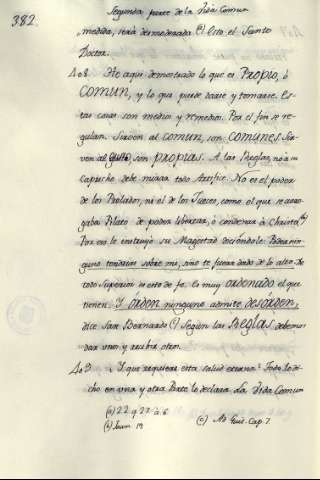 382.
Segunda parte de la Vida Comun
medida, será desmoderada. Esto, el Santo
Doctor.
408 He aqui demostrado lo que es Propio, ó
COMUN, y lo que puede darse y tomarse. Es-
tas cosas son medios y remedios. Por el fin se re-
gulan. Sirven al comun, son COMUNES. Sir-
ven al gusto, son propias. A las Reglas, no á su
Capricho debe mirar todo Artifice. No es el poder
de los Prelados, ni el de los Jueces, como el que se arro-
gaba Pilato de poder libertar, ó condenar á Christo. (b)
Por eso le instruyó su Magestad diciéndole: Poder nin-
guno tendrias sobre mi, sino te fuera dado de lo alto. De
todo Superior es esto de fe. Es muy ordenado el que
tienen. Y órden ninguno admite desórden,
dice San Bernardo (c) Segun las Reglas deben
dar unos y recibir otros.
409 Y que requiere esta salud eterna? Todo lo di-
cho en una y otra Parte lo declara. La Vida Comun
(a) 22. q. 22. a. 6
(b) Juan. 19
(c) Ad Guil. Cap. 7.